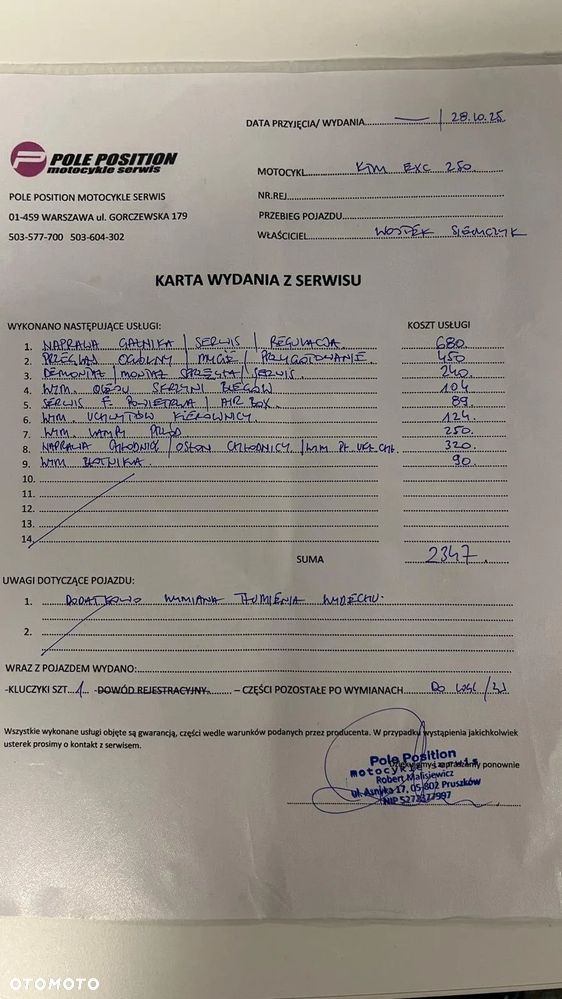 DATA PRZYJĘCIA/ WYDANIA.......— / 28.10.25
POLE POSITION
motocykle serwis
MOTOCYKL KTM EXC 250
POLE POSITION MOTOCYKLE SERWIS
NR.REJ
01-459 WARSZAWA ul. GORCZEWSKA 179
PRZEBIEG POJAZDU
503-577-700 503-604-302
WŁAŚCICIEL
KARTA WYDANIA Z SERWISU
WYKONANO NASTĘPUJĄCE USŁUGI: KOSZT USŁUGI
1. NAPRAWA GAŹNIKA / SERWIS / REGULACJA 680.
2. PRZEGLĄD OGÓLNY / MYCIE / PRZYGOTOWANIE. 450
3. DEMONTAŻ / MONTAŻ SPRZĘGŁA / SERWIS. 240
4. WYM. OLEJU SKRZYNI BIEGÓW 104
5. SERWIS F. POWIETRZA / AIR BOX. 89
6. WYM. UCHWYTÓW KIEROWNICY. 124.
7. WYM. LAMPY PRZÓD. 250.
8. NAPRAWA CHŁODNIC / OSŁON CHŁODNICY / WYM PŁ. UKŁ. CHŁ. 320.
9. WYM BŁOTNIKA. 90
10.
11.
12.
13.
14.
SUMA 2347.
UWAGI DOTYCZĄCE POJAZDU:
1. DODATKOWO WYMIANA TŁUMIENIA WYDECHU.
2.
WRAZ Z POJAZDEM WYDANO:
-KLUCZYKI SZT 1 -DOWÓD REJESTRACYJNY – CZĘŚCI POZOSTAŁE PO WYMIANACH DO
Wszystkie wykonane usługi objęte są gwarancją, części wedle warunków podanych przez producenta. W przypadku wystąpienia jakichkolwiek
usterek prosimy o kontakt z serwisem.
Dziękujemy i zapraszamy ponownie
Pole Position
motocykle serwis
Robert Malisiewicz
ul. Asnyka 17, 05-802 Pruszków
NIP 5272377997
OTOMOTO